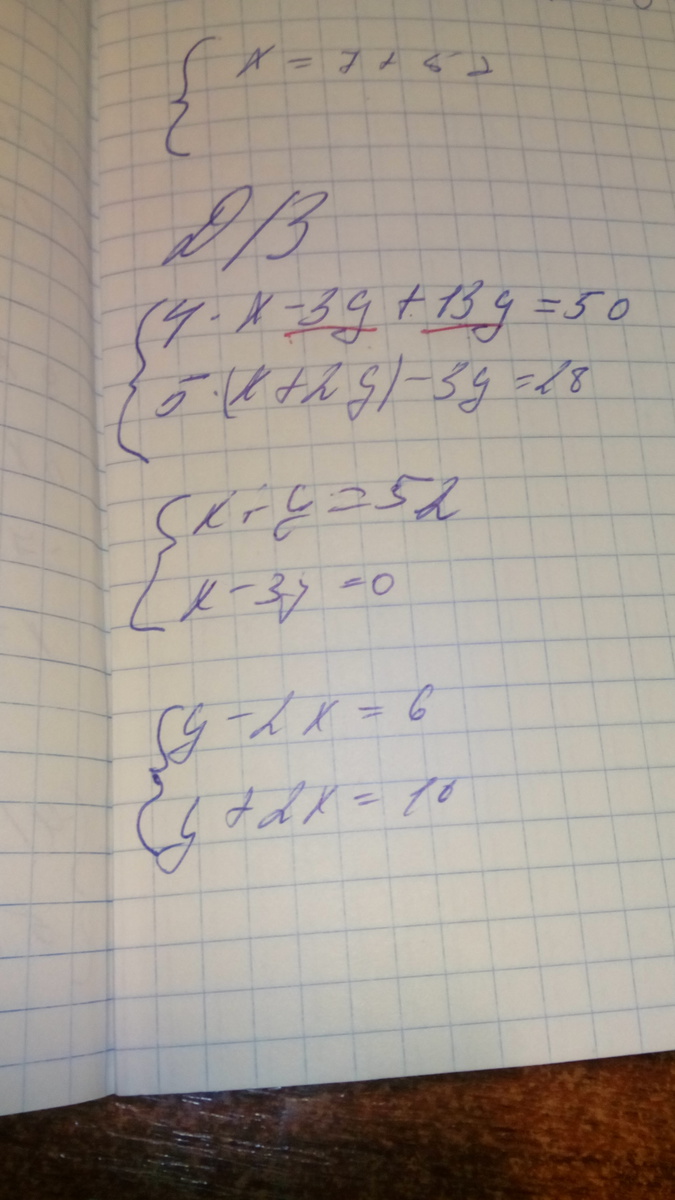 x = 7 + 52
Д/З
4 · x - 3y + 13y = 50
5 · (x + 2y) - 3y = 28
x + y = 52
x - 3y = 0
y - 2x = 6
y + 2x = 10